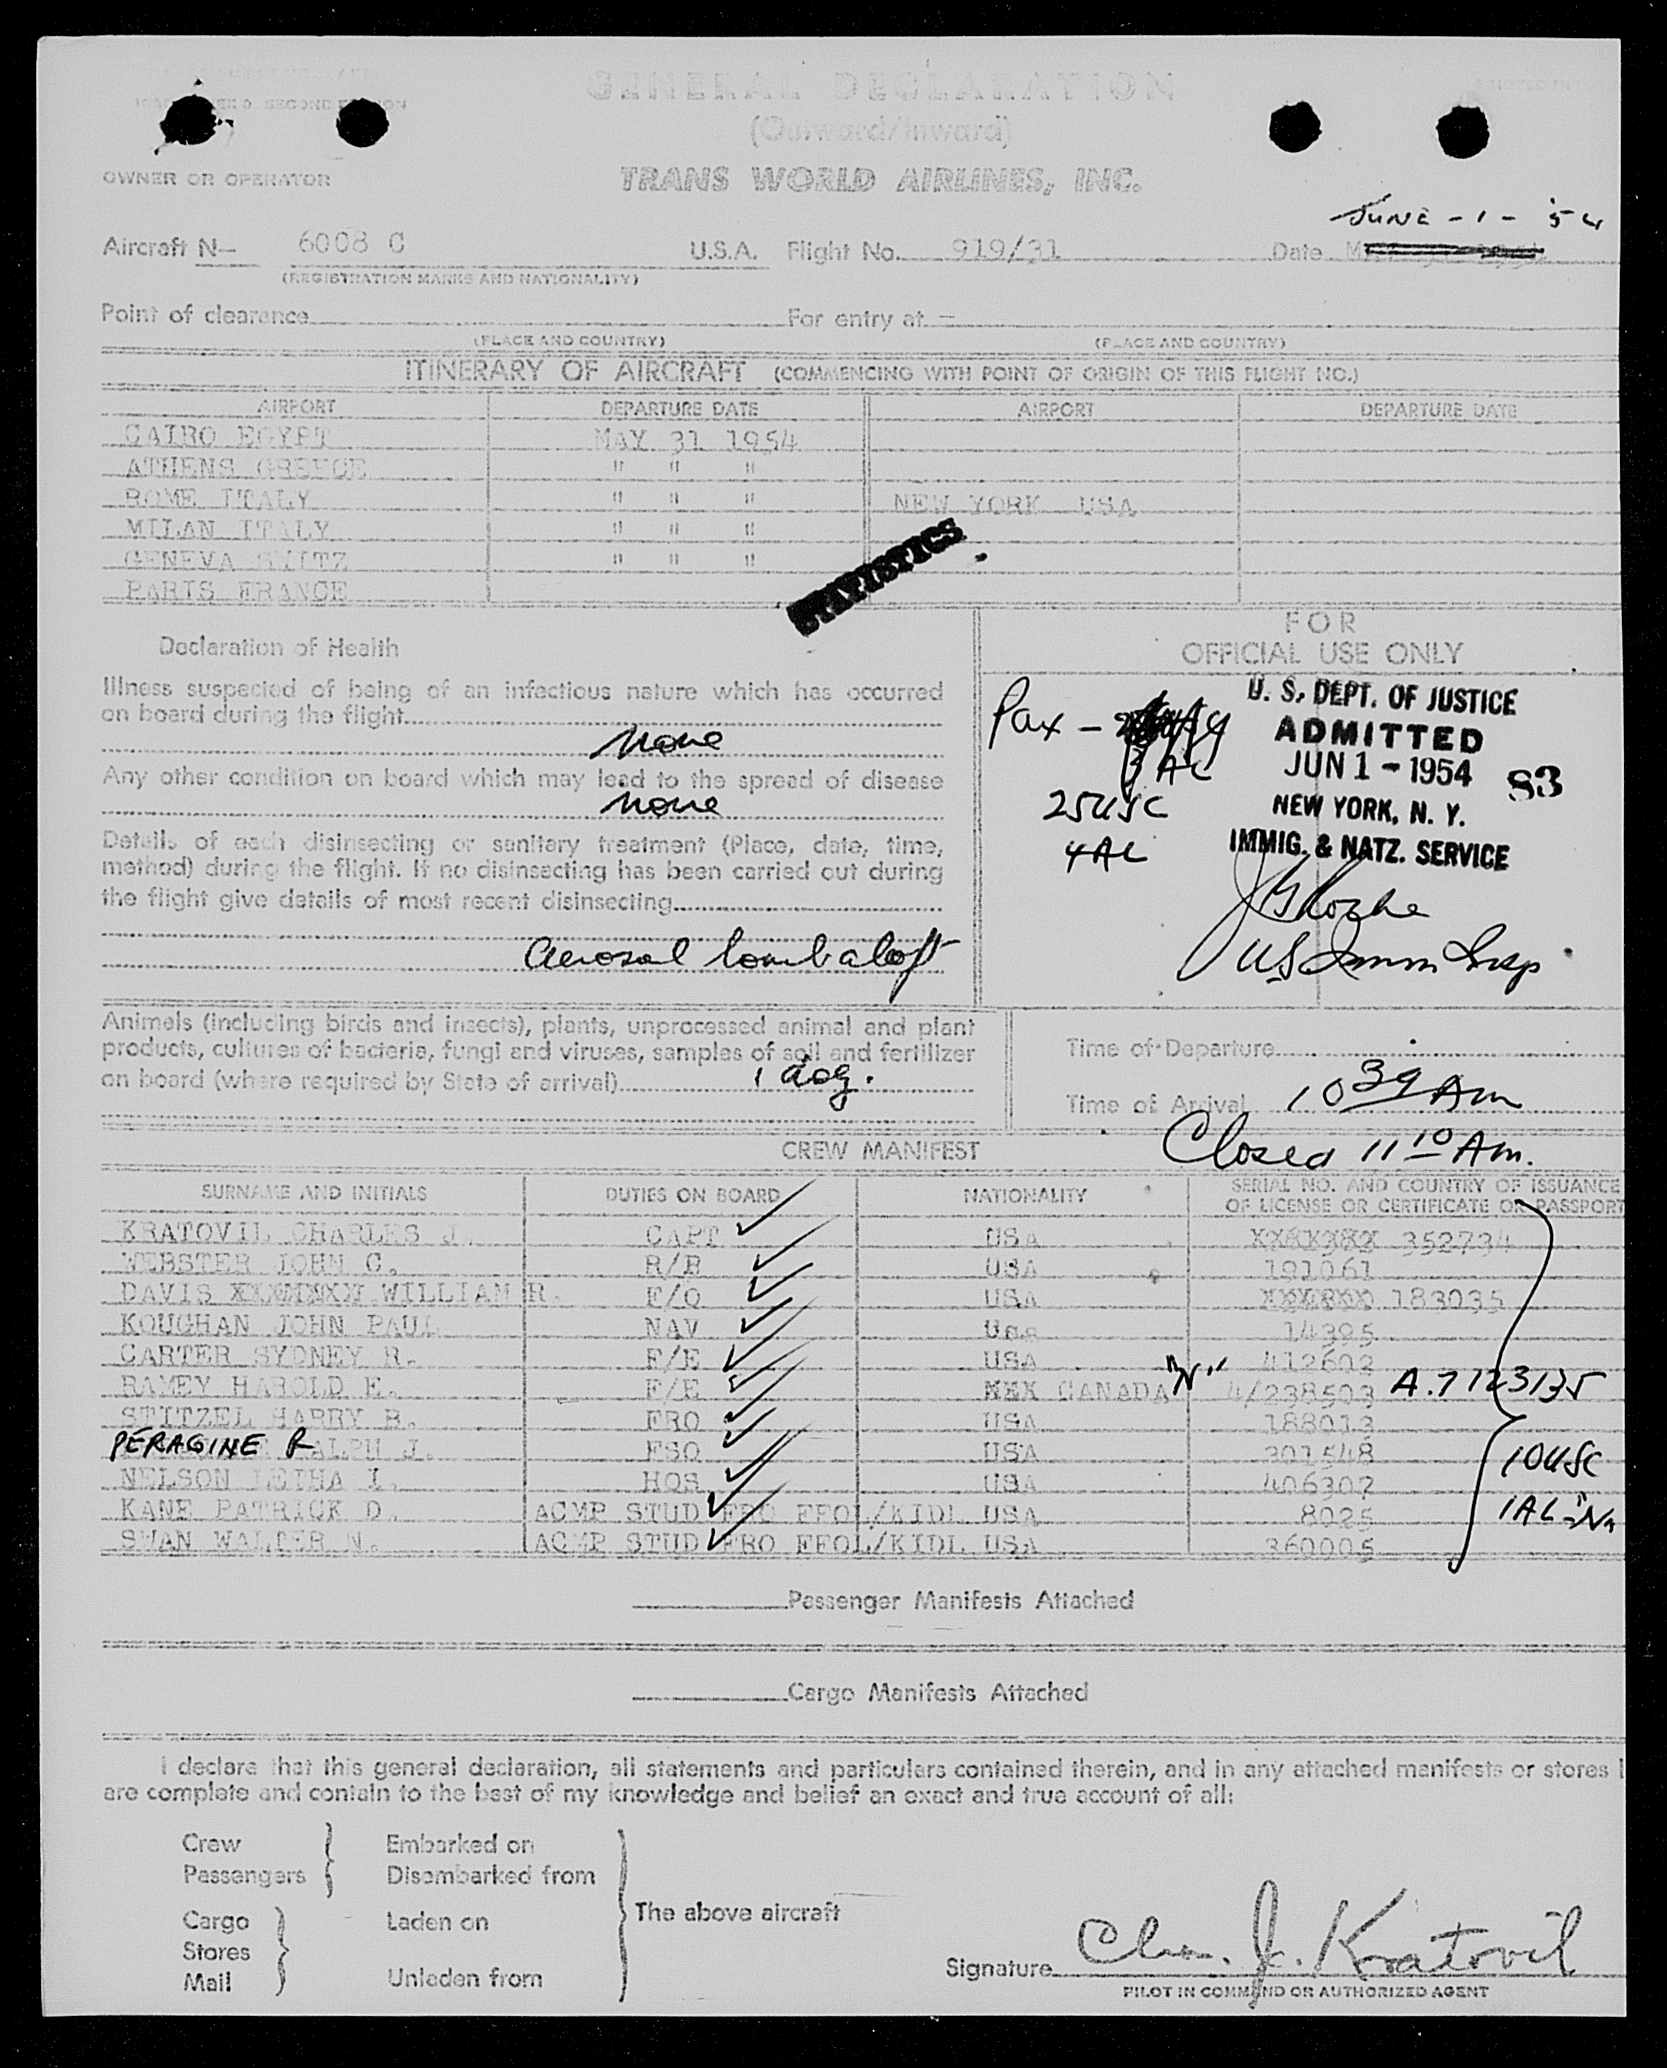 GENERAL DECLARATION
(Outward/Inward)
OWNER OR OPERATOR
TRANS WORLD AIRLINES, INC.
JUNE - 1 - 54
Aircraft N— 6008 C U.S.A. Flight No. 919/31 Date
(REGISTRATION MARKS AND NATIONALITY)
Point of clearance For entry at —
(PLACE AND COUNTRY) (PLACE AND COUNTRY)
ITINERARY OF AIRCRAFT (COMMENCING WITH POINT OF ORIGIN OF THIS FLIGHT NO.)
AIRPORT DEPARTURE DATE AIRPORT DEPARTURE DATE
CAIRO EGYPT MAY 31 1954
ATHENS GREECE " " "
ROME ITALY " " " NEW YORK USA
MILAN ITALY " " "
GENEVA SWITZ " " "
PARIS FRANCE
STATISTICS
FOR
OFFICIAL USE ONLY
Declaration of Health
Illness suspected of being of an infectious nature which has occurred
on board during the flight
none
Any other condition on board which may lead to the spread of disease
none
Details of each disinsecting or sanitary treatment (Place, date, time,
method) during the flight. If no disinsecting has been carried out during
the flight give details of most recent disinsecting
Aerosol bomb aloft
Pax -
3 AL
25USC
4AL
U. S. DEPT. OF JUSTICE
ADMITTED
JUN 1 - 1954 83
NEW YORK, N. Y.
IMMIG. & NATZ. SERVICE
US Immm Insp
Animals (including birds and insects), plants, unprocessed animal and plant
products, cultures of bacteria, fungi and viruses, samples of soil and fertilizer
on board (where required by State of arrival) 1 dog.
Time of Departure
Time of Arrival 10 39 AM
Closed 11 10 AM.
CREW MANIFEST
SURNAME AND INITIALS DUTIES ON BOARD NATIONALITY SERIAL NO. AND COUNTRY OF ISSUANCE
OF LICENSE OR CERTIFICATE OR PASSPORT
KRATOVIL CHARLES J. CAPT USA XXXXXXX 352734
WEBSTER JOHN C. R/B USA 191061
DAVIS XXXXXXXX WILLIAM R. F/O USA XXXXXXX 183035
KOUGHAN JOHN PAUL NAV Usa 14395
CARTER SYDNEY R. F/E USA 412602
RAMEY HAROLD E. F/E XXX CANADA "N" 4/238503 A.7 123135
STITZEL HARRY B. FRO USA 188013
PERAGINE R RALPH J. FSO USA 301548
NELSON LETHA I. HOS USA 406302
KANE PATRICK D. ACMP STUD FRO FFOL/KIDL USA 8025
SWAN WALTER N. ACMP STUD FRO FFOL/KIDL USA 360005
10USC
1AL-"N"
Passenger Manifests Attached
Cargo Manifests Attached
I declare that this general declaration, all statements and particulars contained therein, and in any attached manifests or stores l
are complete and contain to the best of my knowledge and belief an exact and true account of all:
Crew Embarked on
Passengers Disembarked from
The above aircraft
Cargo Laden on
Stores
Mail Unladen from
Signature Chas. J. Kratovil
PILOT IN COMMAND OR AUTHORIZED AGENT